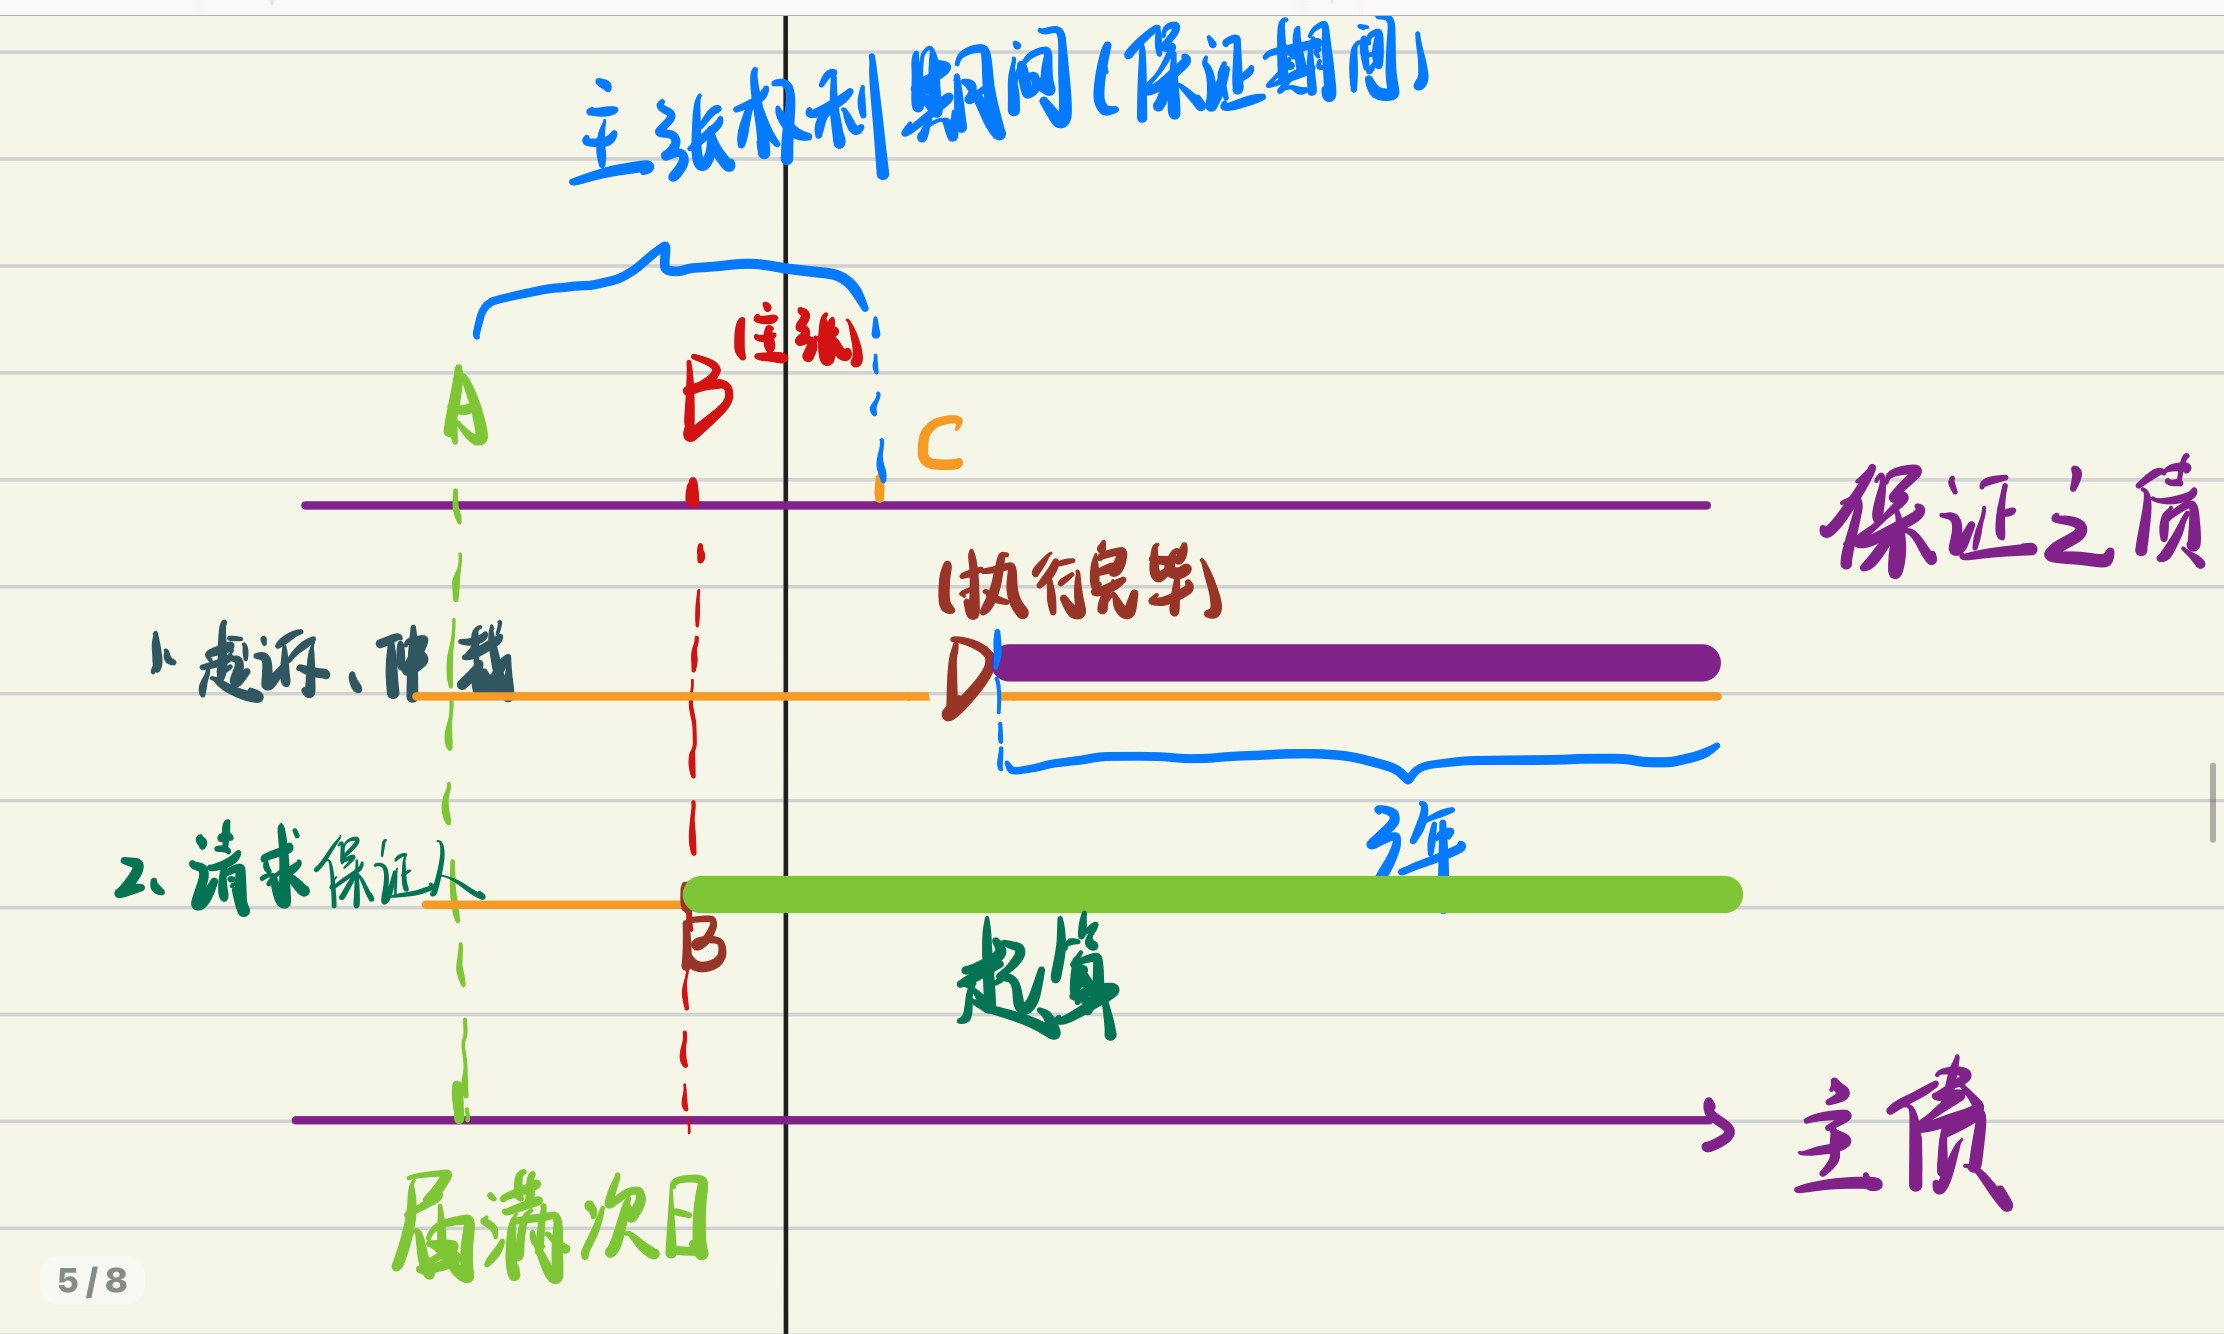 主张权利期间(保证期间)
(主张)
A
B
C
保证之债
(执行完毕)
1、起诉、仲裁
D
3年
2、请求保证人
B
起算
主债
届满次日
5/8